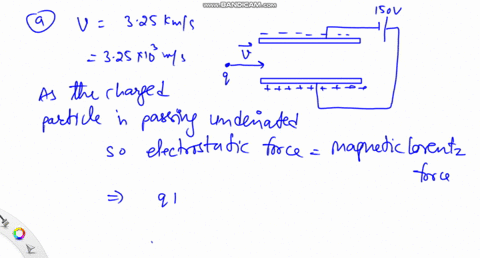 WWW.BANDICAM.COM
ⓐ V = 3.25 km/s
= 3.25×10³ m/s
150V
V⃗
q
- - - - - - -
+ + + + + + + +
As the charged
particle is passing undeviated
so electrostatic force = magnetic Lorentz
force
⇒ q|